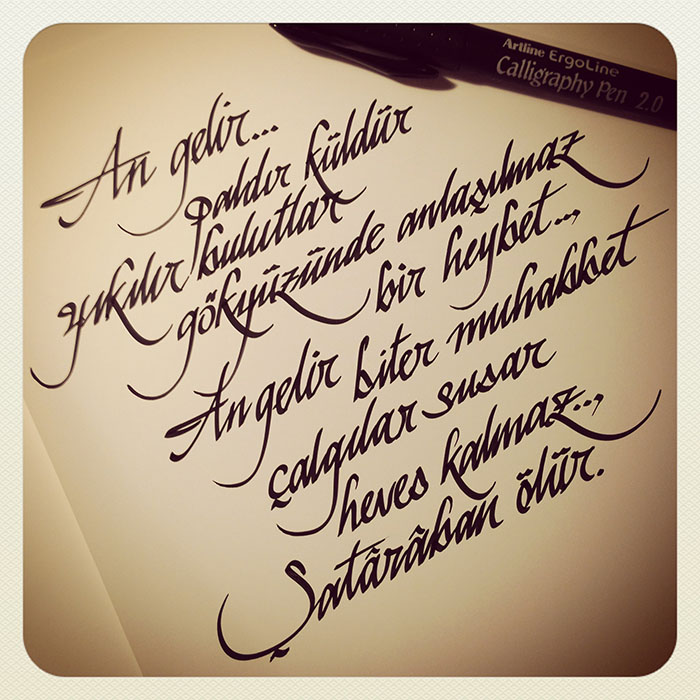 Artline ErgoLine
Calligraphy Pen 2.0
An gelir...
paldır küldür
yıkılır bulutlar
gökyüzünde anlaşılmaz
bir heybet...,
An gelir biter muhabbet
çalgılar susar
heves kalmaz..,
Şatârâban ölür.